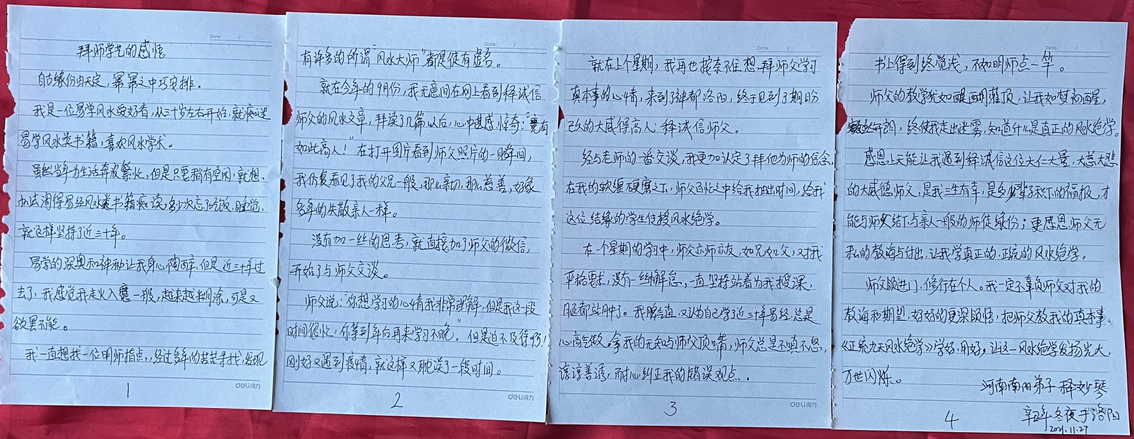 拜师学艺的感悟
自古缘份由天定，冥冥之中巧安排。
我是一位易学风水爱好者，从三十岁左右开始，就痴迷
易学风水类书籍，喜欢风水学术。
虽然当年为生活奔波繁忙，但是只要稍有空闲，就想
办法淘得易经风水类书籍来读，多少次忘了吃饭，睡觉，
就这样坚持了近三十年。
易学的深奥和神秘让我身心陶醉，但是近三十年过
去了，我感觉我走火入魔一般，越来越糊涂，可是又
欲罢不能。
我一直想找一位明师指点，经过多年的苦苦寻找，发现
deli得力
1
Date
有许多的所谓“风水大师”都是徒有虚名。
就在今年的9月份，我无意间在网上看到释诚信
师父的风水文章，拜读了几篇以后，心中甚感惊奇：“竟有
如此高人！”在打开图片看到师父照片的一瞬间，
我仿佛看见了我的父兄一般，那么亲切，那么慈善，好像
多年的失散亲人一样。
没有加一丝的思考，就直接加了师父的微信，
开始了与师父交谈。
师父说：“你想学习的心情我非常理解，但是我这一段
时间很忙，你等到年后再来学习不晚。”但是迫不及待的我
刚好又遇到疫情，就这样又耽误了一段时间。
deli得力
2
Date
就在上个星期，我再也按奈不住想拜师父学习
真本事的心情，来到洛阳，终于见到了期盼
已久的大威德高人：释诚信师父。
经与老师的一番交谈，我更加认定了拜他为师的信念，
在我的软缠硬磨之下，师父百忙之中给我抽出时间，给我
这位结缘的学生传授风水绝学。
在一个星期的学习中，师父亦师亦友，如兄如父，对我
严格要求，没有一丝懈怠，一直坚持站着为我授课，
腿都站肿了。我脾气直，又认为自己学近三十年易经，总是
心高气傲，拿我的无知与师父顶嘴，师父总是不嗔不怒，
谆谆善诱，耐心纠正我的错误观点。
deli得力
3
Date
书上得到终觉浅，不如明师点一华。
师父的教学犹如醍醐灌顶，让我如梦初醒，
开朗，终使我走出迷雾，知道什么是真正的风水绝学。
感恩上天能让我遇到释诚信这位大仁大量，大慈大悲
的大威德师父，是我三生有幸，是多辈子积下的福报，才
能与师父结下与亲人一般的师徒缘份；更感恩师父无
私的教诲与付出，让我学真正的、正统的风水绝学。
师父领进门，修行在个人。我一定不辜负师父对我的
教诲和期望，好好的更深领悟，把师父教我的真本事、
《正统九天风水绝学》学好，用好，让这一风水绝学发扬光大，
万世闪烁。
河南南阳弟子 释妙琴
辛丑年冬夜于洛阳
2021.11.27
4